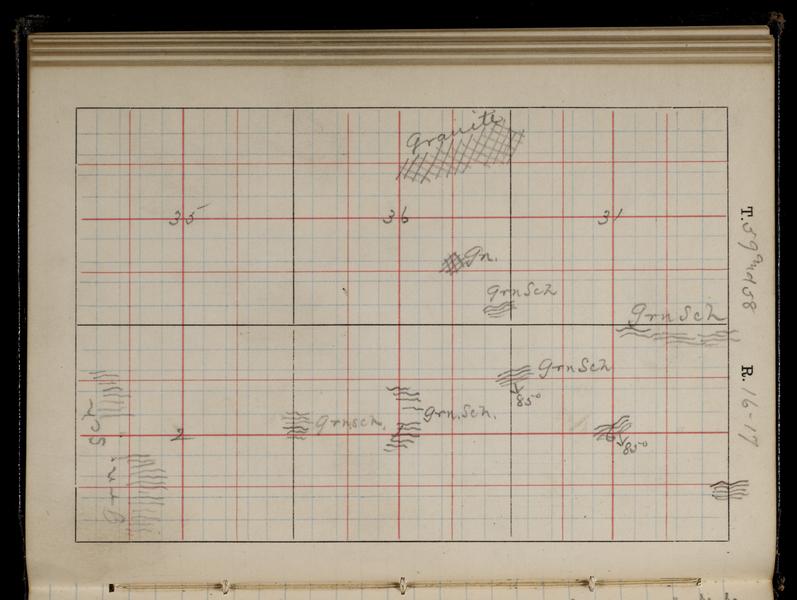 Granite
35
36
31
Gn.
GrnSch
GrnSch
GrnSch
85°
Grnsch.
Grn.Sch.
2
6
85°
Grn. Sch
T. 59 and 58
R. 16-17